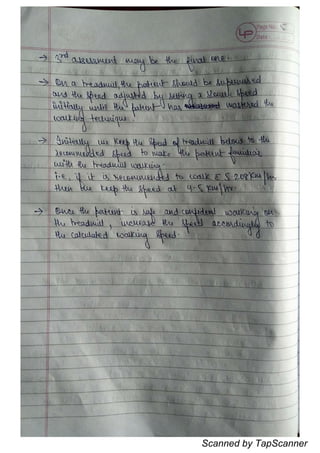 Page No.:
Date:
4P
→ 2nd assessment may be the final one.
→ On a treadmill, the patient should be supervised
and the speed adjusted by setting a slower speed
initially until the patient has mastered the
walking technique.
→ Initially we keep the speed of treadmill below to the
recommended speed to make the patient familiar
with the treadmill walking.
i.e., if it is recommended to walk @ 5.208 km/hr.
then we keep the speed at 4.5 km/hr.
→ Once the patient is safe and confident walking on
the treadmill, increase the speed accordingly to
the calculated walking speed.
Scanned by TapScanner